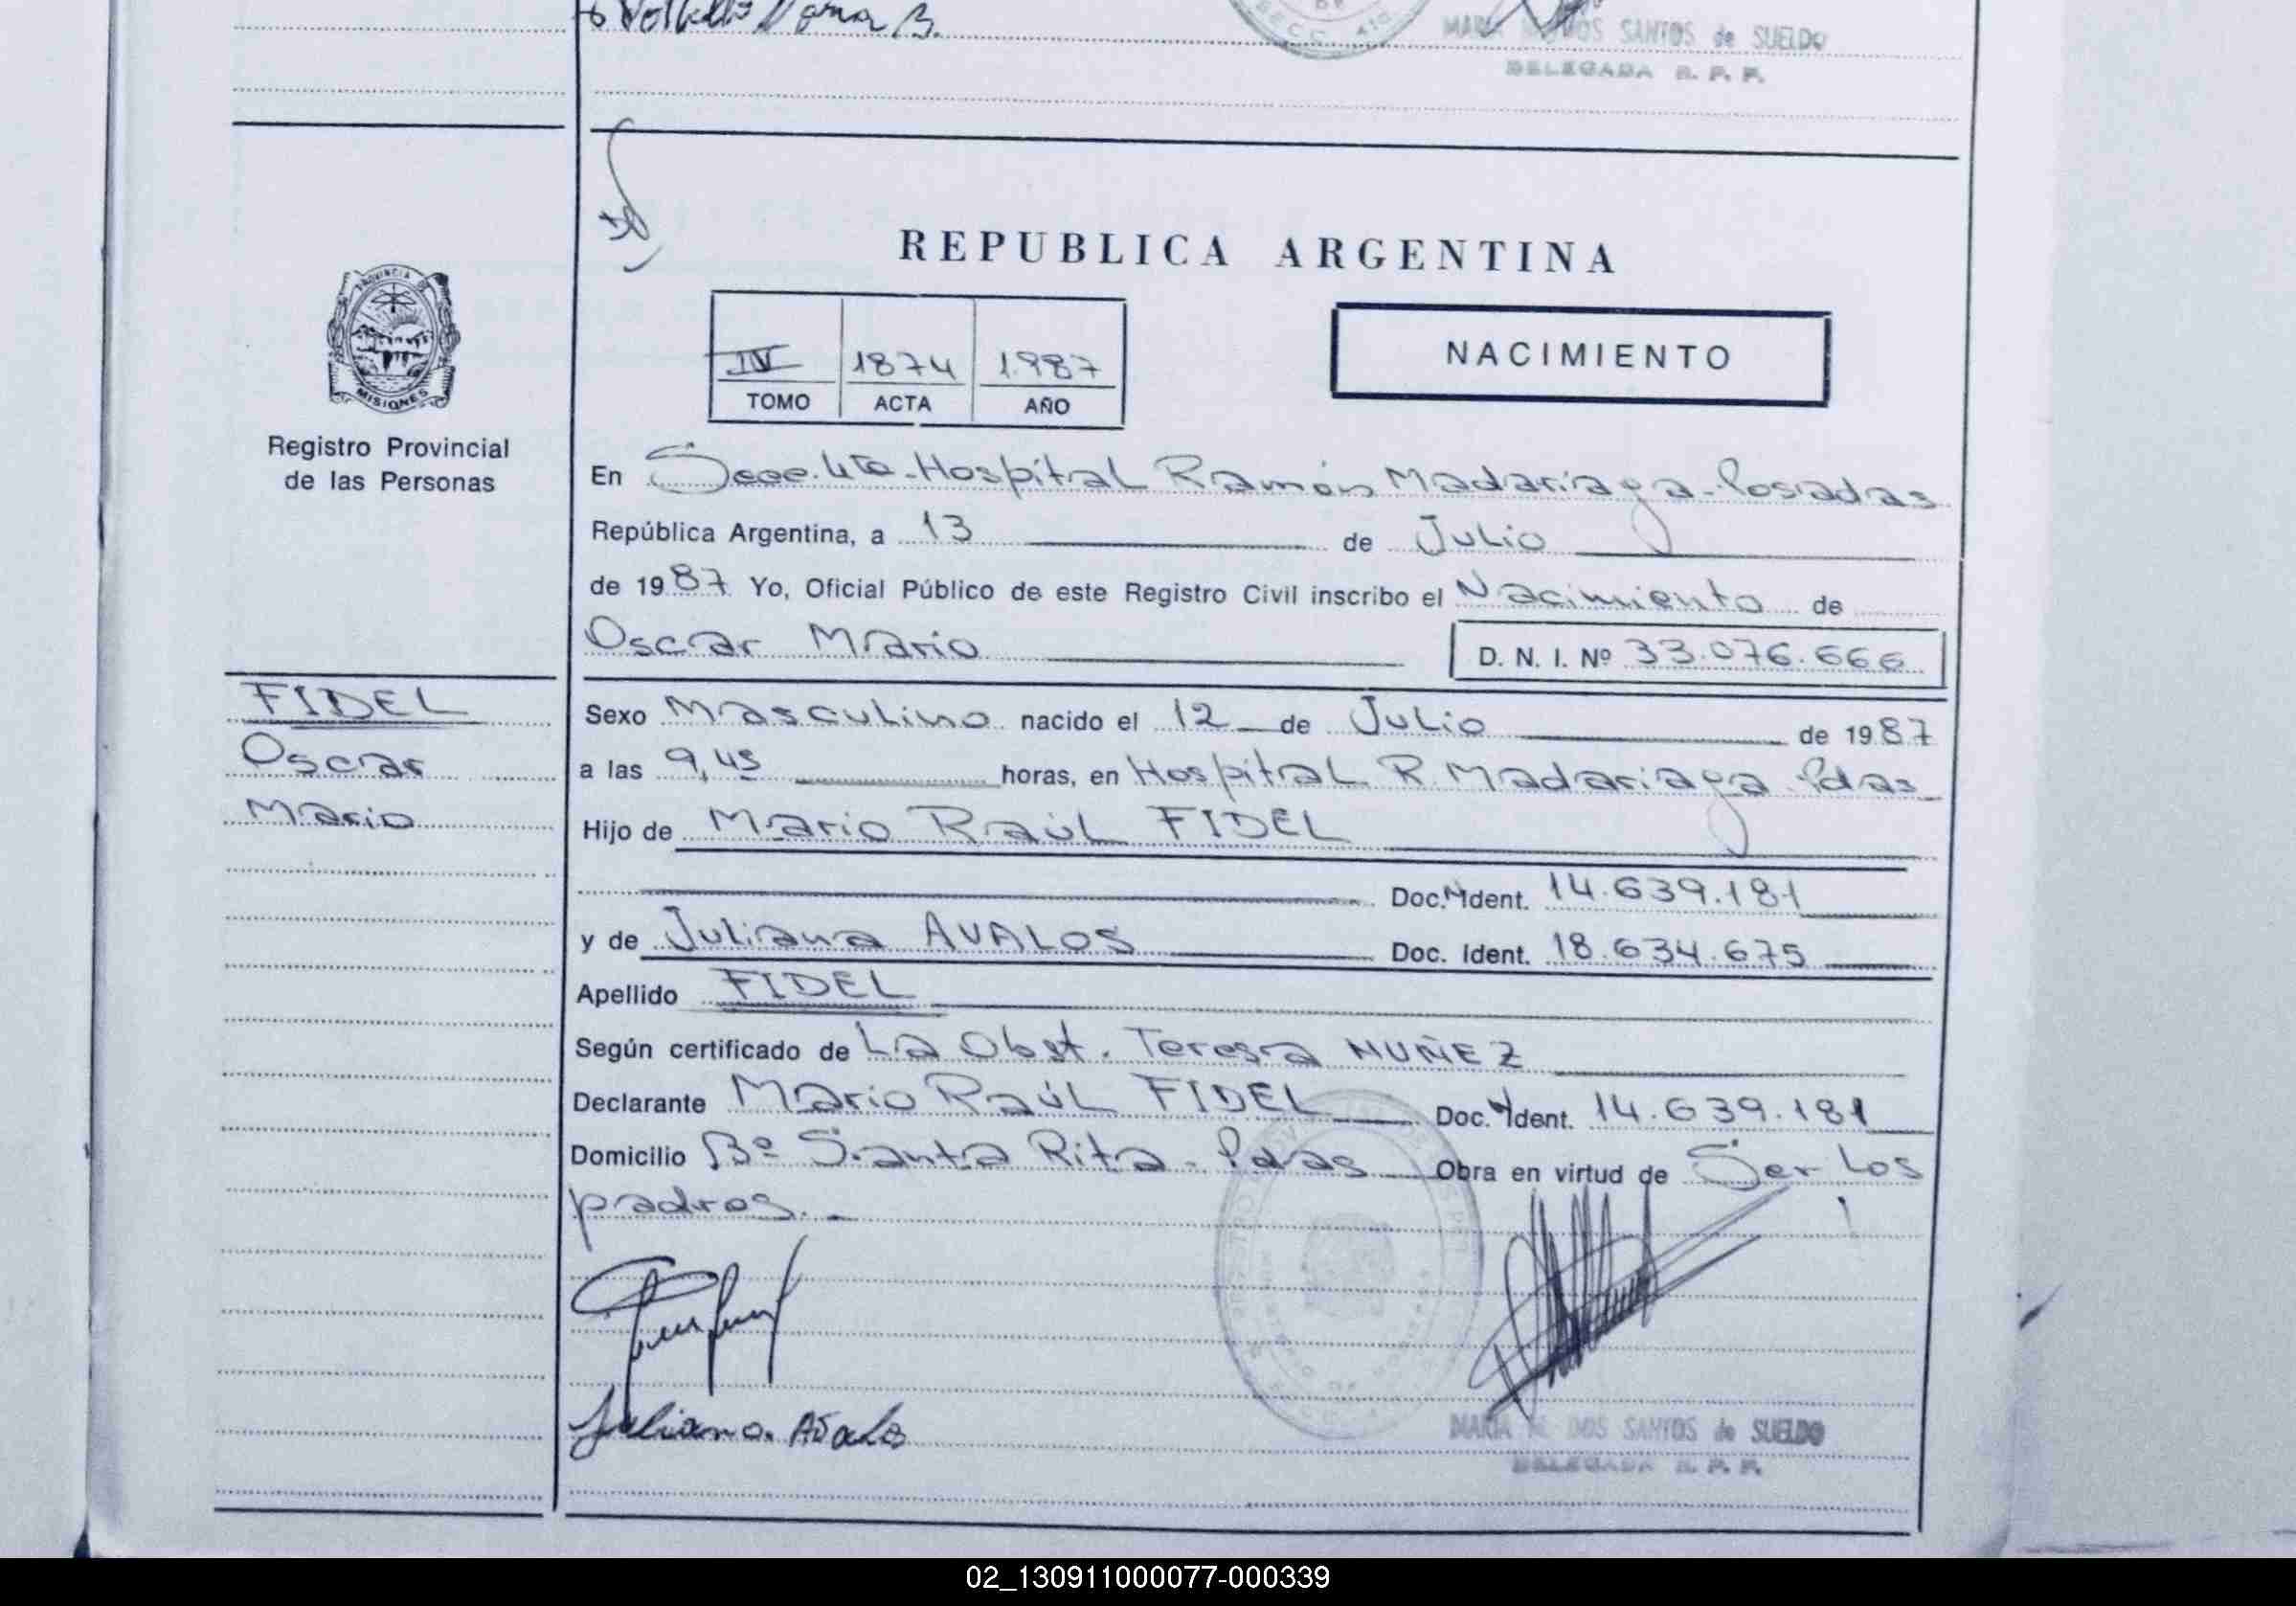 MARIA DOS SANTOS de SUELDO
DELEGADA R. P. P.
REPUBLICA ARGENTINA
PROVINCIA DE
MISIONES
Registro Provincial
de las Personas
IV 1874 1.987
TOMO ACTA AÑO
NACIMIENTO
En Secc. 4ta - Hospital Ramón Madariaga - Posadas
República Argentina, a 13 de Julio
de 1987 Yo, Oficial Público de este Registro Civil inscribo el Nacimiento de
Oscar Mario D. N. I. Nº 33.076.666
FIDEL
Oscar
Mario
Sexo Masculino nacido el 12 de Julio de 1987
a las 9,45 horas, en Hospital R. Madariaga Pdas
Hijo de Mario Raúl FIDEL
Doc. Ident. 14.639.181
y de Juliana AVALOS Doc. Ident. 18.634.675
Apellido FIDEL
Según certificado de La Obst. Teresa NUÑEZ
Declarante Mario Raúl FIDEL Doc. Ident. 14.639.181
Domicilio Bº Santa Rita - Pdas Obra en virtud de Ser Los
padres. -
Juliana Avalos
MARIA M. DOS SANTOS de SUELDO
DELEGADA R. P. P.
02_130911000077-000339